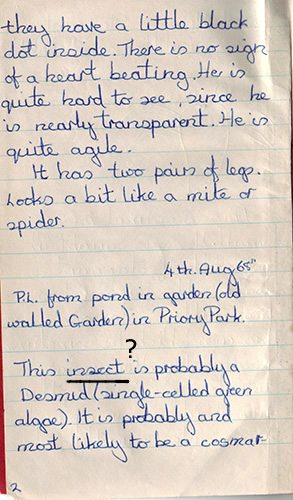 they have a little black
dot inside. There is no sign
of a heart beating. He is
quite hard to see, since he
is nearly transparent. He is
quite agile.
It has two pairs of legs.
Looks a bit like a mite or
spider.
4th. Aug 65"
P.L. from pond in garden (old
walled Garden) in Priory Park.
?
This insect is probably a
Desmid (single-celled green
algae). It is probably and
most likely to be a cosmar-
2